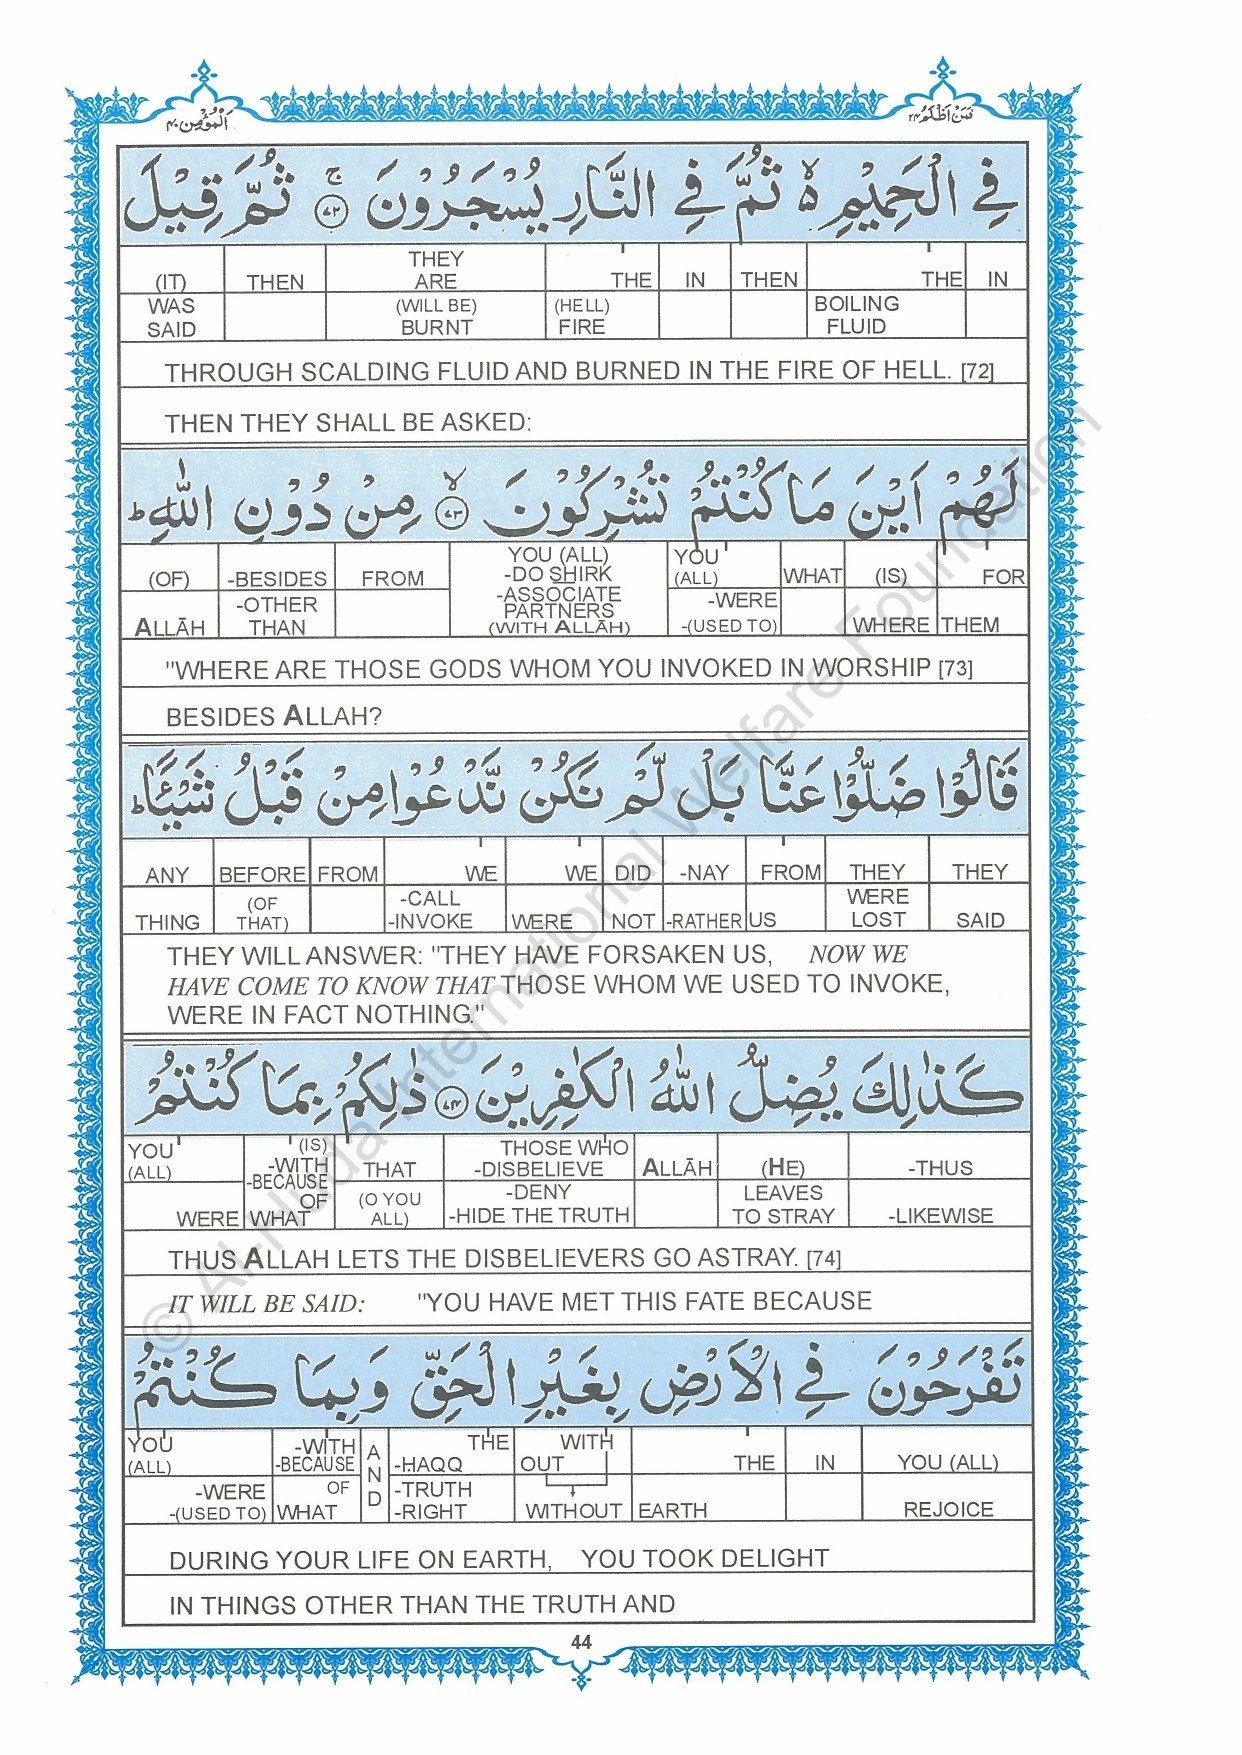 فَمَنْ اَظْلَمُ ٢٤
اَلْمُؤْمِن ٤٠
فِي الْحَمِيْمِ ۙ ثُمَّ فِي النَّارِ يُسْجَرُوْنَ ۚ ﴿٧٢﴾ ثُمَّ قِيْلَ
(IT) THEN THEY ARE THE IN THEN THE IN
WAS SAID (WILL BE) BURNT (HELL) FIRE BOILING FLUID
THROUGH SCALDING FLUID AND BURNED IN THE FIRE OF HELL. [72]
THEN THEY SHALL BE ASKED:
لَهُمْ اَيْنَ مَا كُنْتُمْ تُشْرِكُوْنَ ۙ ﴿٧٣﴾ مِنْ دُوْنِ اللّٰهِ ؕ
(OF) -BESIDES FROM YOU (ALL) -DO SHIRK YOU (ALL) WHAT (IS) FOR
ALLĀH -OTHER THAN -ASSOCIATE PARTNERS (WITH ALLĀH) -WERE -(USED TO) WHERE THEM
"WHERE ARE THOSE GODS WHOM YOU INVOKED IN WORSHIP [73]
BESIDES ALLAH?
قَالُوْا ضَلُّوْا عَنَّا بَلْ لَّمْ نَكُنْ نَّدْعُوْا مِنْ قَبْلُ شَيْـًٔا ؕ
ANY BEFORE FROM WE WE DID -NAY FROM THEY THEY
THING (OF THAT) -CALL -INVOKE WERE NOT -RATHER US WERE LOST SAID
THEY WILL ANSWER: "THEY HAVE FORSAKEN US, NOW WE
HAVE COME TO KNOW THAT THOSE WHOM WE USED TO INVOKE,
WERE IN FACT NOTHING."
كَذٰلِكَ يُضِلُّ اللّٰهُ الْكٰفِرِيْنَ ﴿٧٤﴾ ذٰلِكُمْ بِمَا كُنْتُمْ
YOU (ALL) (IS) -WITH -BECAUSE THAT THOSE WHO -DISBELIEVE ALLĀH (HE) -THUS
WERE OF WHAT (O YOU ALL) -DENY -HIDE THE TRUTH LEAVES TO STRAY -LIKEWISE
THUS ALLAH LETS THE DISBELIEVERS GO ASTRAY. [74]
IT WILL BE SAID: "YOU HAVE MET THIS FATE BECAUSE
تَفْرَحُوْنَ فِي الْاَرْضِ بِغَيْرِ الْحَقِّ وَبِمَا كُنْتُمْ
YOU (ALL) -WITH -BECAUSE AND THE -HAQQ WITH OUT THE IN YOU (ALL)
-WERE -(USED TO) OF WHAT -TRUTH -RIGHT WITHOUT EARTH REJOICE
DURING YOUR LIFE ON EARTH, YOU TOOK DELIGHT
IN THINGS OTHER THAN THE TRUTH AND
44
© Al-Huda International Welfare Foundation